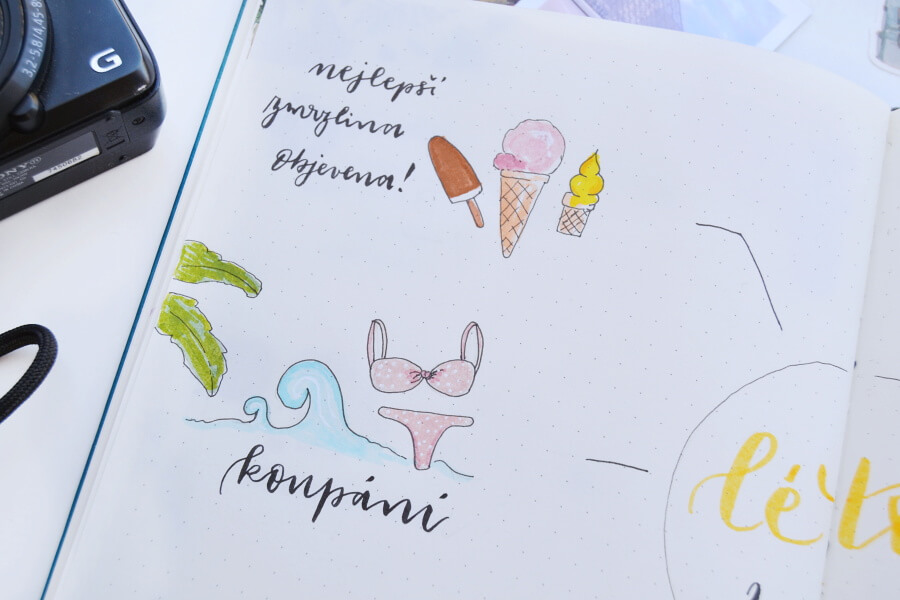 nejlepší
zmrzlina
objevena!
koupání
léto
G